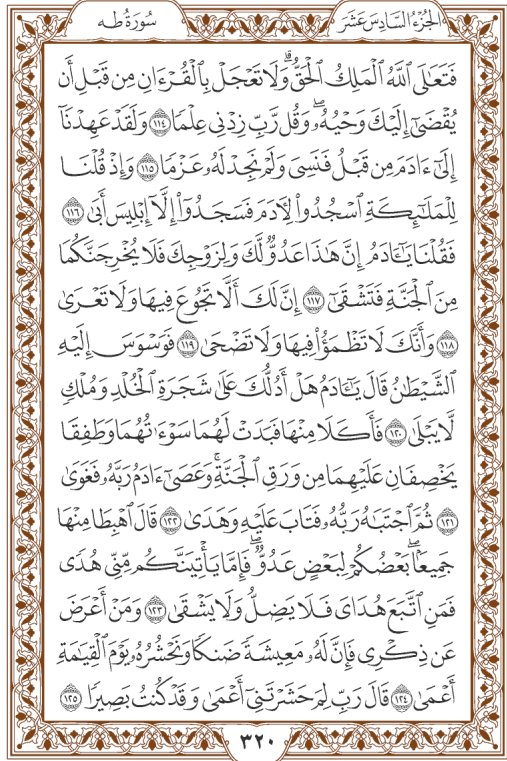 الجُزْءُ السَّادِسَ عَشَرَ
سُورَةُ طه
فَتَعَٰلَى ٱللَّهُ ٱلْمَلِكُ ٱلْحَقُّ ۗ وَلَا تَعْجَلْ بِٱلْقُرْءَانِ مِن قَبْلِ أَن
يُقْضَىٰٓ إِلَيْكَ وَحْيُهُۥ ۖ وَقُل رَّبِّ زِدْنِى عِلْمًا ١١٤ وَلَقَدْ عَهِدْنَآ
إِلَىٰٓ ءَادَمَ مِن قَبْلُ فَنَسِىَ وَلَمْ نَجِدْ لَهُۥ عَزْمًا ١١٥ وَإِذْ قُلْنَا
لِلْمَلَٰٓئِكَةِ ٱسْجُدُوا۟ لِءَادَمَ فَسَجَدُوٓا۟ إِلَّآ إِبْلِيسَ أَبَىٰ ١١٦
فَقُلْنَا يَٰٓـَٔادَمُ إِنَّ هَٰذَا عَدُوٌّ لَّكَ وَلِزَوْجِكَ فَلَا يُخْرِجَنَّكُمَا
مِنَ ٱلْجَنَّةِ فَتَشْقَىٰٓ ١١٧ إِنَّ لَكَ أَلَّا تَجُوعَ فِيهَا وَلَا تَعْرَىٰ
١١٨ وَأَنَّكَ لَا تَظْمَؤُا۟ فِيهَا وَلَا تَضْحَىٰ ١١٩ فَوَسْوَسَ إِلَيْهِ
ٱلشَّيْطَٰنُ قَالَ يَٰٓـَٔادَمُ هَلْ أَدُلُّكَ عَلَىٰ شَجَرَةِ ٱلْخُلْدِ وَمُلْكٍ
لَّا يَبْلَىٰ ١٢٠ فَأَكَلَا مِنْهَا فَبَدَتْ لَهُمَا سَوْءَٰتُهُمَا وَطَفِقَا
يَخْصِفَانِ عَلَيْهِمَا مِن وَرَقِ ٱلْجَنَّةِ ۚ وَعَصَىٰٓ ءَادَمُ رَبَّهُۥ فَغَوَىٰ
١٢١ ثُمَّ ٱجْتَبَٰهُ رَبُّهُۥ فَتَابَ عَلَيْهِ وَهَدَىٰ ١٢٢ قَالَ ٱهْبِطَا مِنْهَا
جَمِيعًۢا ۖ بَعْضُكُمْ لِبَعْضٍ عَدُوٌّ ۖ فَإِمَّا يَأْتِيَنَّكُم مِّنِّى هُدًى
فَمَنِ ٱتَّبَعَ هُدَاىَ فَلَا يَضِلُّ وَلَا يَشْقَىٰ ١٢٣ وَمَنْ أَعْرَضَ
عَن ذِكْرِى فَإِنَّ لَهُۥ مَعِيشَةً ضَنكًا وَنَحْشُرُهُۥ يَوْمَ ٱلْقِيَٰمَةِ
أَعْمَىٰ ١٢٤ قَالَ رَبِّ لِمَ حَشَرْتَنِىٓ أَعْمَىٰ وَقَدْ كُنتُ بَصِيرًا ١٢٥
٣٢٠